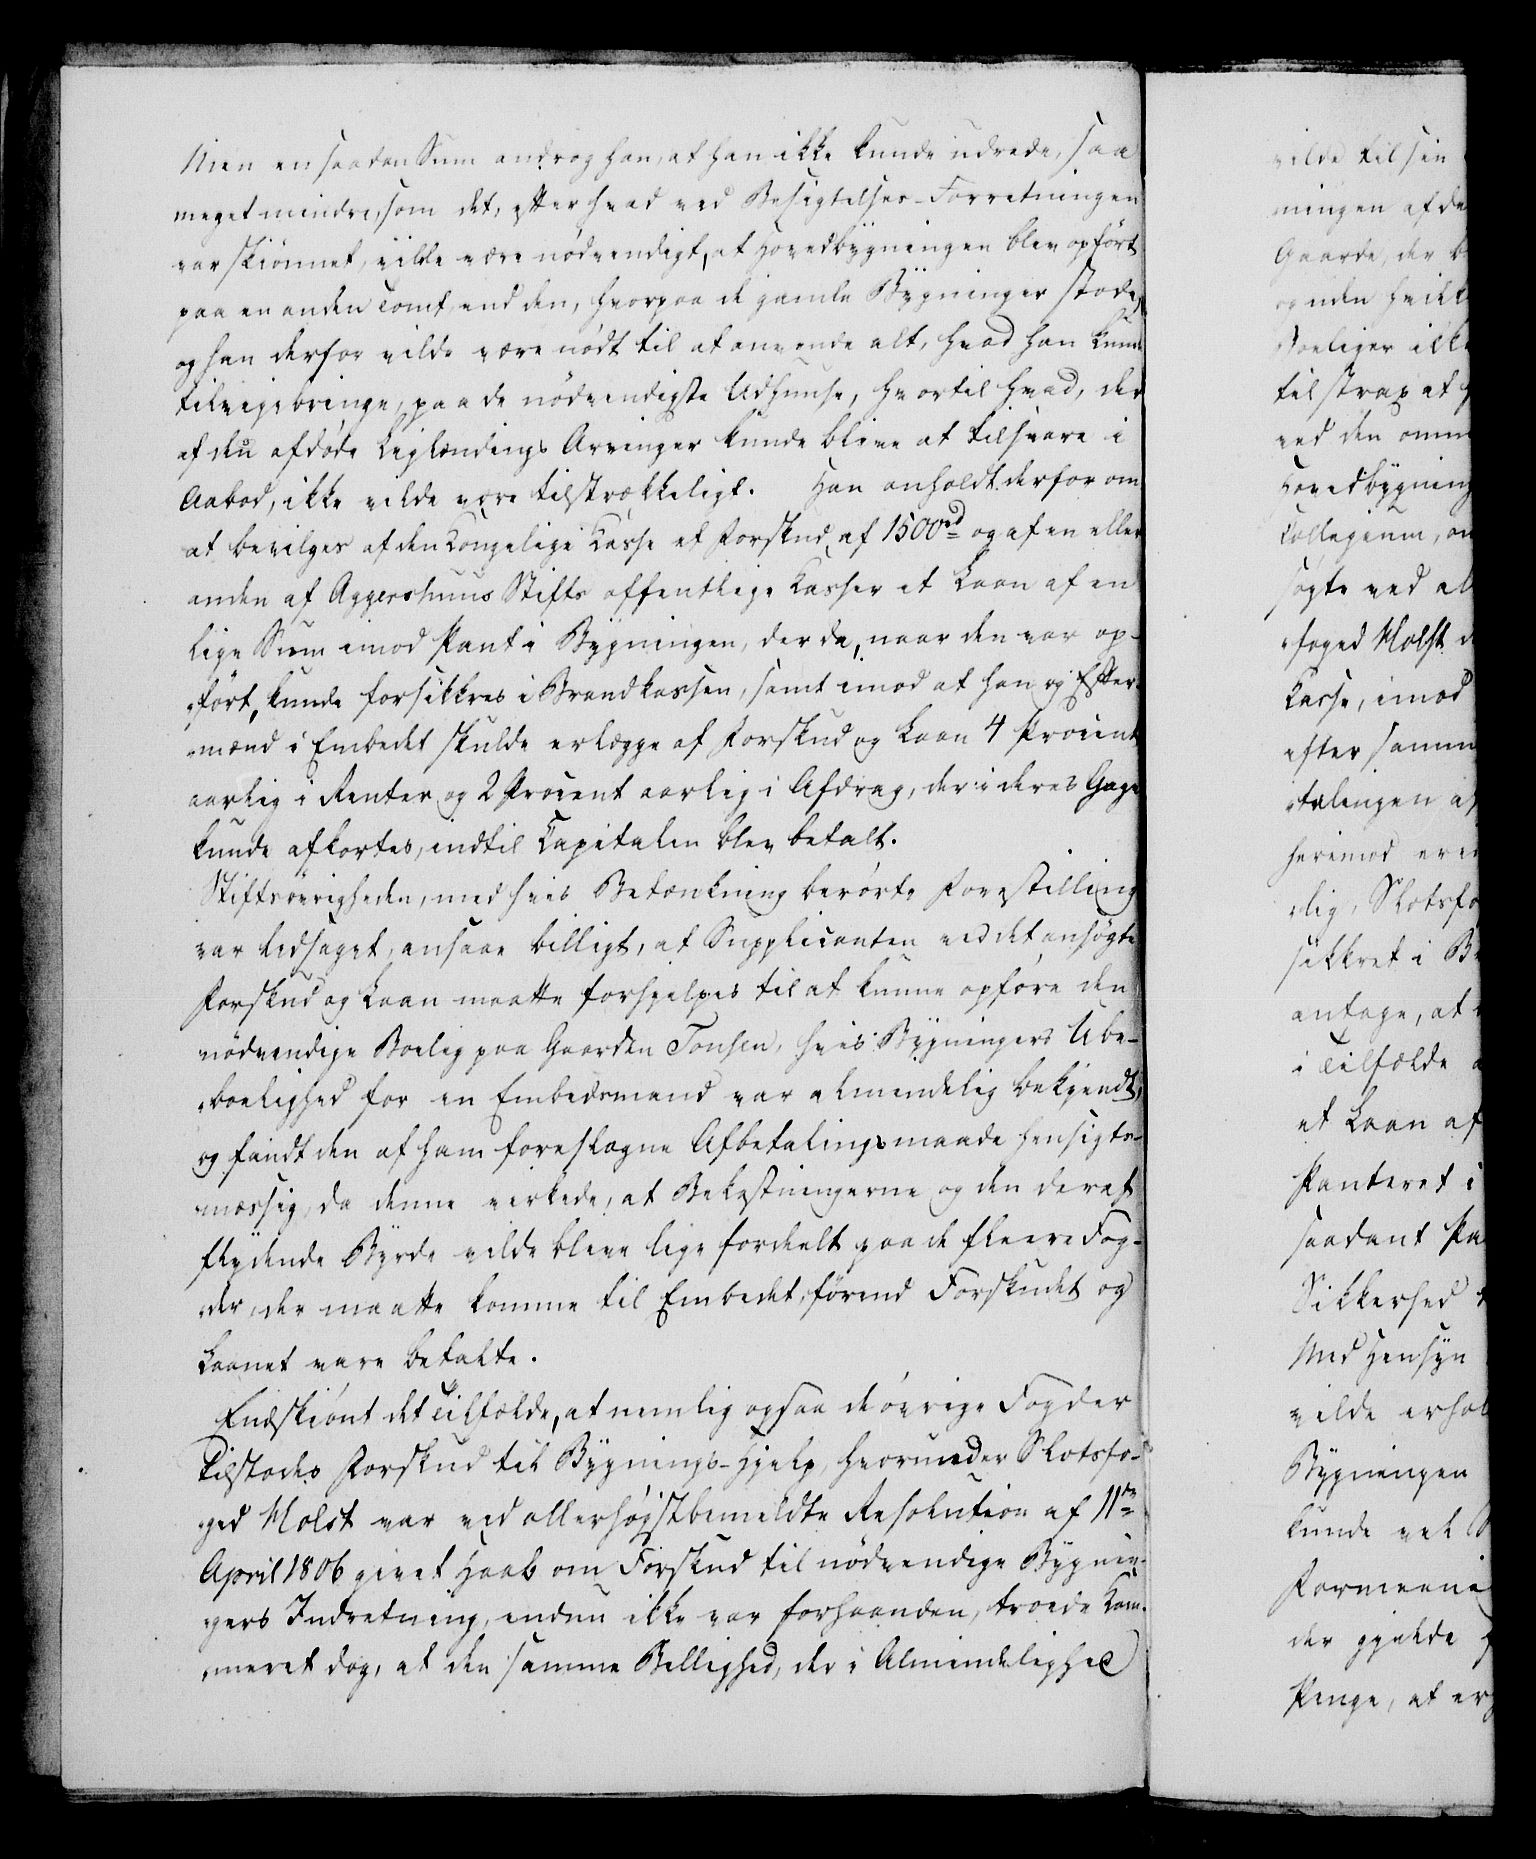 Men en saadan Sum androg han, at han ikke kunde udrede, saa
meget mindre, som det, efter hvad ved Besigtelses-Forretningen
var skiønnet, vilde være nödvendigt, at Hovedbygningen blev opfört
paa en anden Tomt, end den, hvorpaa de gamle Bygninger stode,
og han derfor vilde være nödt til at anvende alt, hvad han kunde
tilveiebringe, paa de nödvendigste Udhuuse, hvortil hvad, der
af den afdöde Leylændings Arvinger kunde blive at tilsvare i
Aabod, ikke vilde være tilstrækkeligt. Han anholdt derfor om
at bevilges af den Kongelige Kasse et Forskud af 1500rd og af en eller
anden af Aggershuus Stifts offentlige Kasser et Laan af en
lige Sum imod Pant i Bygningen, der da, naar den var op-
fört, kunde forsikkres i Brandkassen, samt imod at han og Efter-
mænd i Embedet skulde erlægge af Forskud og Laan 4 Procent
aarlig i Renter og 2 Procent aarlig i Afdrag, der i deres Gage
kunde afkortes, indtil Capitalen blev betalt.
Stiftsövrigheden, med hvis Betænkning berörte Forestilling
var ledsaget, ansaae billigt, at Supplicanten ved det ansögte
Forskud og Laan maatte forhjelpes til at kunne opföre den
nödvendige Boelig paa Gaarden Tonsen, hvis Bygningers Ube-
boelighed for en Embedsmand var almindelig bekjendt,
og fandt den af ham foreslagne Afbetalingsmaade hensigts-
mæssig, da denne virkede, at Bekostningerne og den deraf
flydende Byrde vilde blive lige fordeelt paa de fleere Fog-
der, der maatte komme til Embedet, förend Forskudet og
Laanet vare betalte.
Endskiönt det Tilfælde, at nemlig ogsaa de övrige Fogder
tilstodes Forskud til Bygnings-Hjelp, hvorunder Slotsfo-
ged Holst var ved allerhöjstbemeldte Resolution af 11te
April 1806 givet Haab om Forskud til nödvendige Bygnin-
gers Indretning, endnu ikke var forhaanden, troede Kam-
meret dog, at den samme Billighed, der i Almindelighed
vilde til sin
ningen af de
Gaarde, der b
og uden hvilk
Boeliger ikk
til strax at
ved den omm
Hovedbygning
Collegium, om
sögte ved al
foged Holst d
Kasse, imod
efter samm
talingen af
herimod er
lig, Slotsfo
sikkret i Br
antage, at
i Tilfælde
et Laan af
Panteret i
saadant Pa
Sikkerhed
Med Hensyn
vilde erhol
Bygningen
kunde vel
Formeeni
der gjelde
Penge, at er